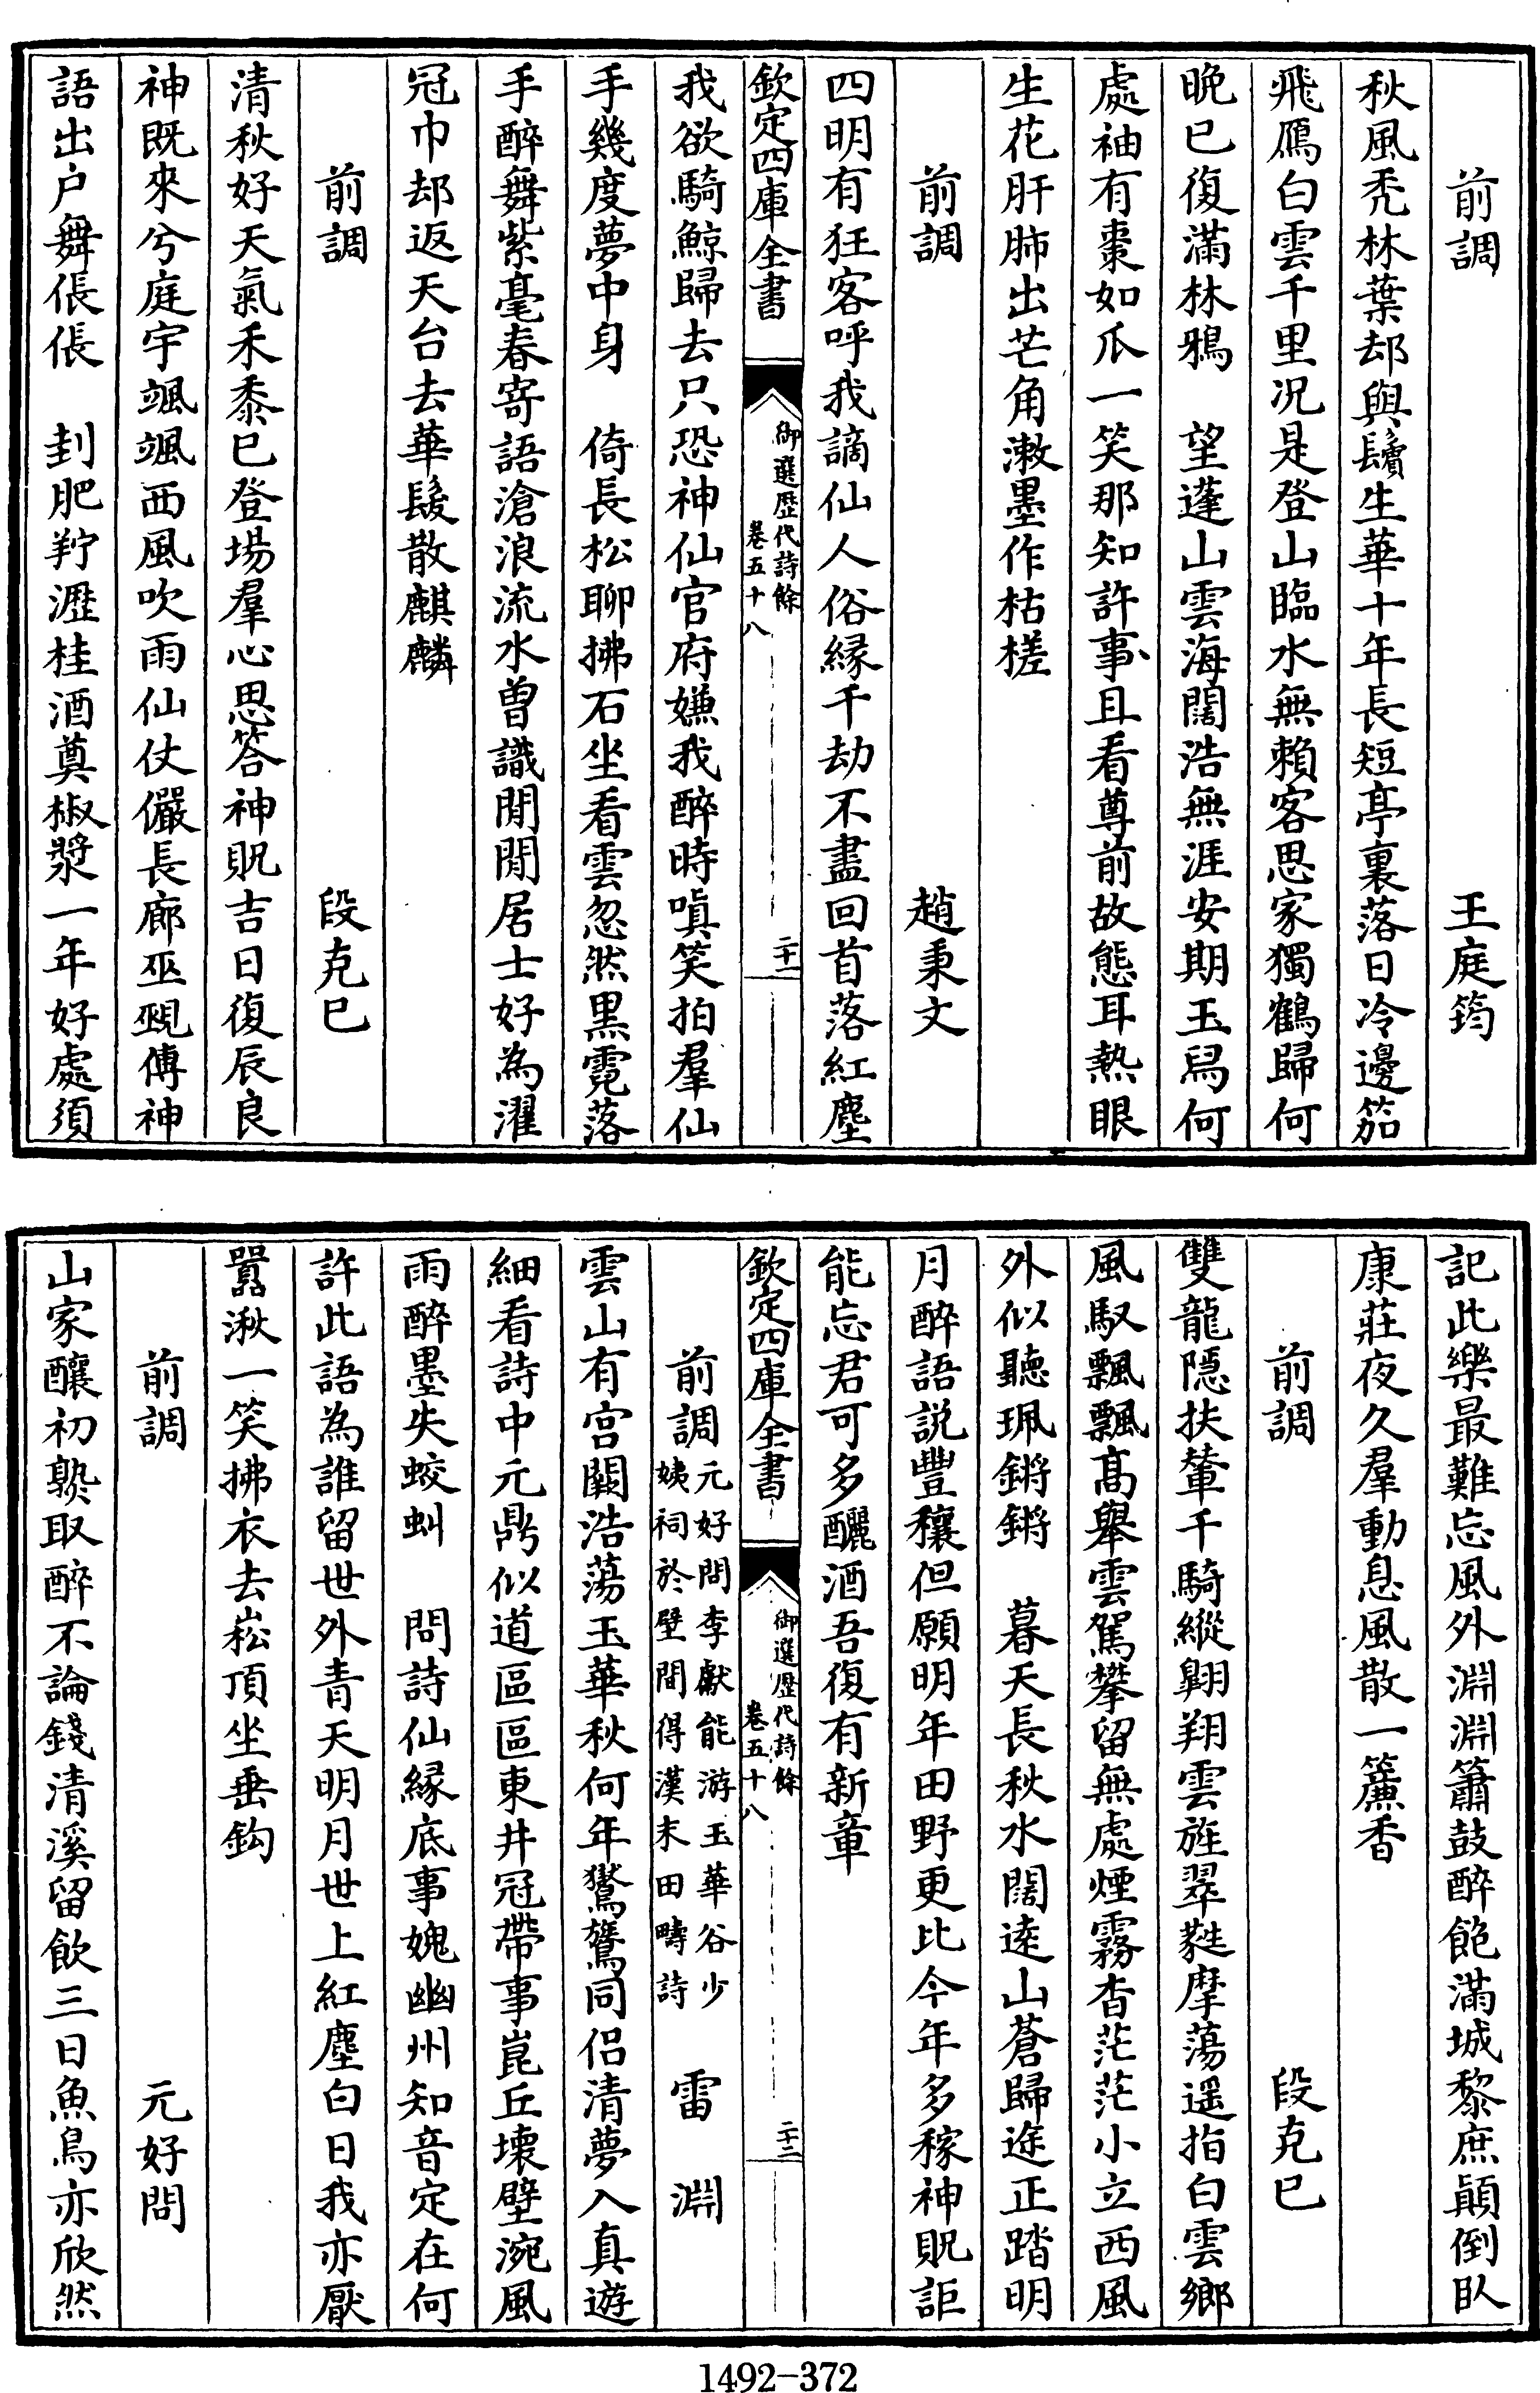 前調　王庭筠
秋風禿林葉却與鬢生華十年長短亭裏落日冷邊笳
飛鴈白雲千里况是登山臨水無賴客思家獨鶴歸何
晚已復滿林鴉　望蓬山雲海闊浩無涯安期玉舄何
處袖有棗如瓜一笑那知許事且看尊前故態耳熱眼
生花肝肺出芒角漱墨作枯槎
前調　趙秉文
四明有狂客呼我謫仙人俗縁千劫不盡回首落紅塵
欽定四庫全書　御選歴代詩餘　卷五十八　二十一
我欲騎鯨歸去只恐神仙官府嫌我醉時嗔笑拍羣仙
手幾度夢中身　倚長松聊拂石坐看雲忽然黒霓落
手醉舞紫毫春寄語滄浪流水曾識閒閒居士好為濯
冠巾却返天台去華髮散麒麟
前調　段克已
清秋好天氣禾黍已登場羣心思答神貺吉日復辰良
神既來兮庭宇颯颯西風吹雨仙仗儼長廊巫覡傳神
語出户舞倀倀　刲肥羜瀝桂酒奠椒漿一年好處須
記此樂最難忘風外淵淵簫鼓醉飽滿城黎庶顛倒臥
康莊夜久羣動息風散一簾香
前調　段克已
雙龍隠扶輦千騎縱翺翔雲旌翠蕤摩蕩遥指白雲鄉
風馭飄飄髙舉雲駕攀留無處煙霧杳茫茫小立西風
外似聽珮鏘鏘　暮天長秋水闊逺山蒼歸途正踏明
月醉語説豐穰但願明年田野更比今年多稼神貺詎
能忘君可多釃酒吾復有新章
欽定四庫全書　御選歴代詩餘　卷五十八　二十二
前調　元好問李獻能游玉華谷少姨祠於壁間得漢末田疇詩　雷淵
雲山有宫闕浩蕩玉華秋何年鸑鷟同侣清夢入真遊
細看詩中元鼎似道區區東井冠帶事崑丘壊壁涴風
雨醉墨失蛟虯　問詩仙縁底事媿幽州知音定在何
許此語為誰留世外青天明月世上紅塵白日我亦厭
嚣湫一笑拂衣去崧頂坐垂鈎
前調　元好問
山家釀初熟取醉不論錢清溪留飲三日魚鳥亦欣然
1492-372